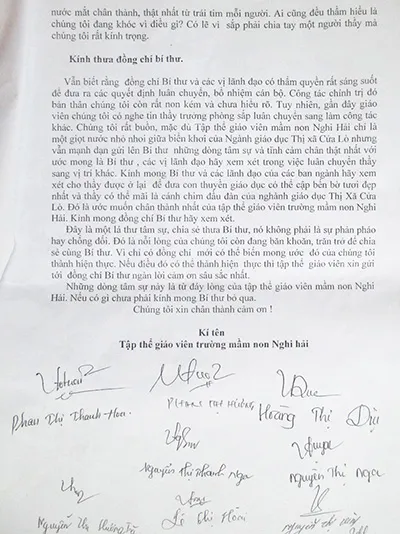 nước mắt chân thành, thật nhất từ trái tim mỗi người. Ai cũng đều thầm hiểu là
chúng tôi đang khóc vì điều gì? Có lẽ vì sắp phải chia tay một người thầy mà
chúng tôi rất kính trọng.
Kính thưa đồng chí bí thư.
Vẫn biết rằng đồng chí Bí thư và các vị lãnh đạo có thẩm quyền rất sáng suốt
để đưa ra các quyết định luân chuyển, bổ nhiệm cán bộ. Công tác chính trị đó
bản thân chúng tôi còn rất non kém và chưa hiểu rõ. Tuy nhiên, gần đây giáo
viên chúng tôi có nghe tin thầy trưởng phòng sắp luân chuyển sang làm công tác
khác. Chúng tôi rất buồn, mặc dù Tập thể giáo viên mầm non Nghi Hải chỉ là
một giọt nước nhỏ nhoi giữa biển khơi của Ngành giáo dục Thị xã Cửa Lò nhưng
vẫn mạnh dạn gửi lên Bí thư những dòng tâm sự và tình cảm chân thật nhất với
ước mong là Bí thư , các vị lãnh đạo hãy xem xét trong việc luân chuyển thầy
sang vị trí khác. Kính mong Bí thư và các lãnh đạo của các ban ngành hãy xem
xét cho thầy được ở lại để đưa con thuyền giáo dục có thể cập bến bờ tươi đẹp
nhất và thầy có thể mãi là cánh chim đầu đàn của nghành giáo dục Thị Xã Cửa
Lò. Đó là ước muốn chân thành nhất của tập thể giáo viên trường mầm non Nghi
Hải. Kính mong đồng chí Bí thư hãy xem xét.
Đây là một lá thư tâm sự, chia sẻ thưa Bí thư, nó không phải là sự phản pháo
hay chống đối. Đó là nỗi lòng của chúng tôi còn đang băn khoăn, trăn trở để chia
sẻ cùng Bí thư. Vì chỉ có đồng chí mới có thể biến mong ước đó của chúng tôi
thành hiện thực. Nếu điều đó có thể thành hiện thực thì tập thể giáo viên xin gửi
tới đồng chí Bí thư ngàn lời cảm ơn sâu sắc nhất.
Những dòng tâm sự này là từ đáy lòng của tập thể giáo viên mầm non Nghi
Hải. Nếu có gì chưa phải kính mong Bí thư bỏ qua.
Chúng tôi xin chân thành cảm ơn !
Kí tên
Tập thể giáo viên trường mầm non Nghi hải
Phan Thị Thanh Hoa
Hoàng Thị Dịu
Nguyễn Thị Thanh Nga
Nguyễn Thị Nga
Nguyễn Thị Hương Trà
Lê Thị Hoàn
Nguyễn Thị